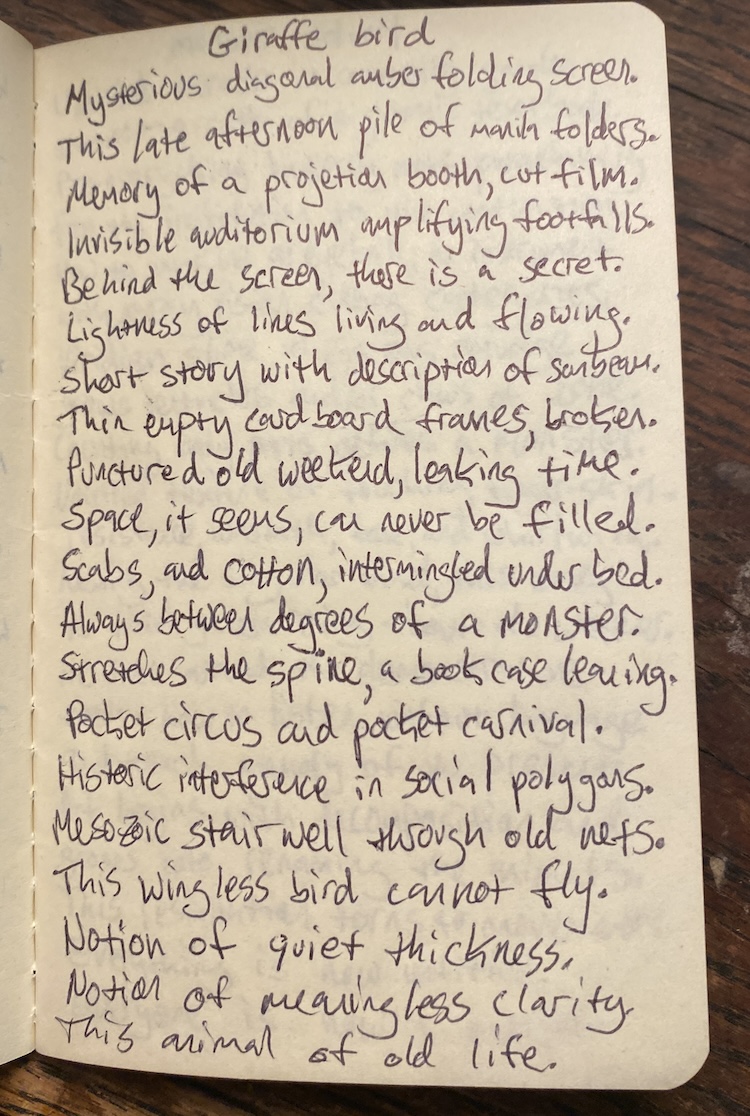 Giraffe bird
Mysterious diagonal amber folding screen.
This late afternoon pile of manila folders.
Memory of a projection booth, cut film.
Invisible auditorium amplifying footfalls.
Behind the screen, there is a secret.
Lightness of lines living and flowing.
Short story with description of sunbeam.
Thin empty cardboard frames, broken.
Punctured old weekend, leaking time.
Space, it seems, can never be filled.
Scabs, and cotton, intermingled under bed.
Always between degrees of a monster.
Stretches the spine, a bookcase leaning.
Pocket circus and pocket carnival.
Historic interference in social polygons.
Mesozoic stairwell through old nets.
This wingless bird cannot fly.
Notion of quiet thickness.
Notion of meaningless clarity.
This animal of old life.